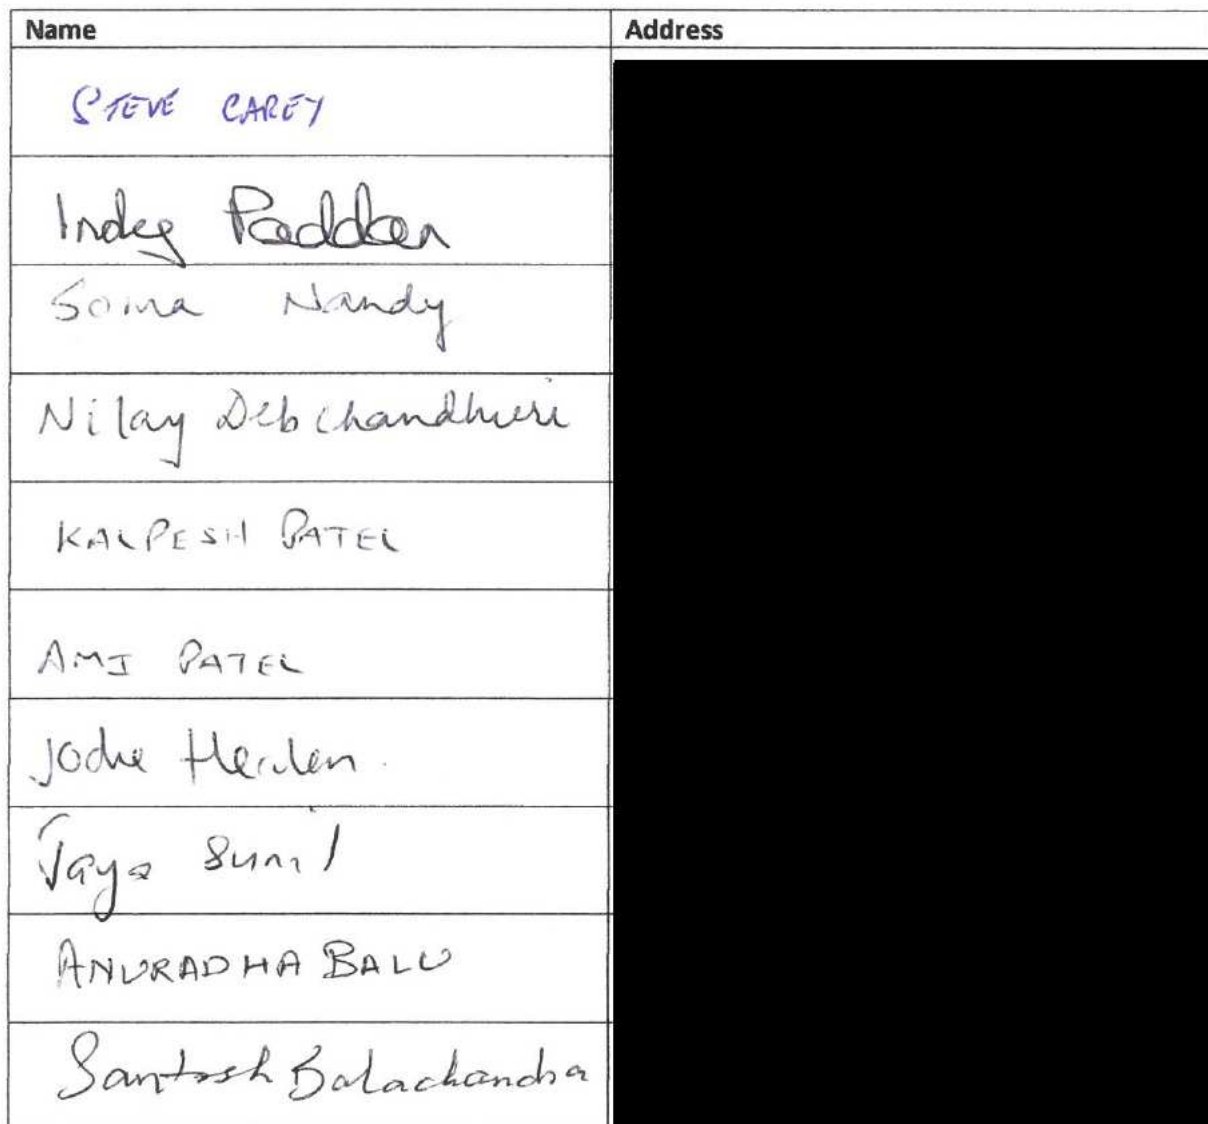 Name Address
STEVE CAREY
Indy Paddan
Soma Nandy
Nilay Debchandhuri
KALPESH PATEL
AMI PATEL
Jodie
Jaya Sunil
ANURADHA BALU
Santosh Balachandra